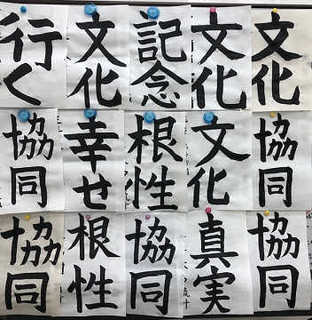 行く
文化
記念
文化
文化
協同
幸せ
根性
文化
協同
協同
根性
協同
真実
協同